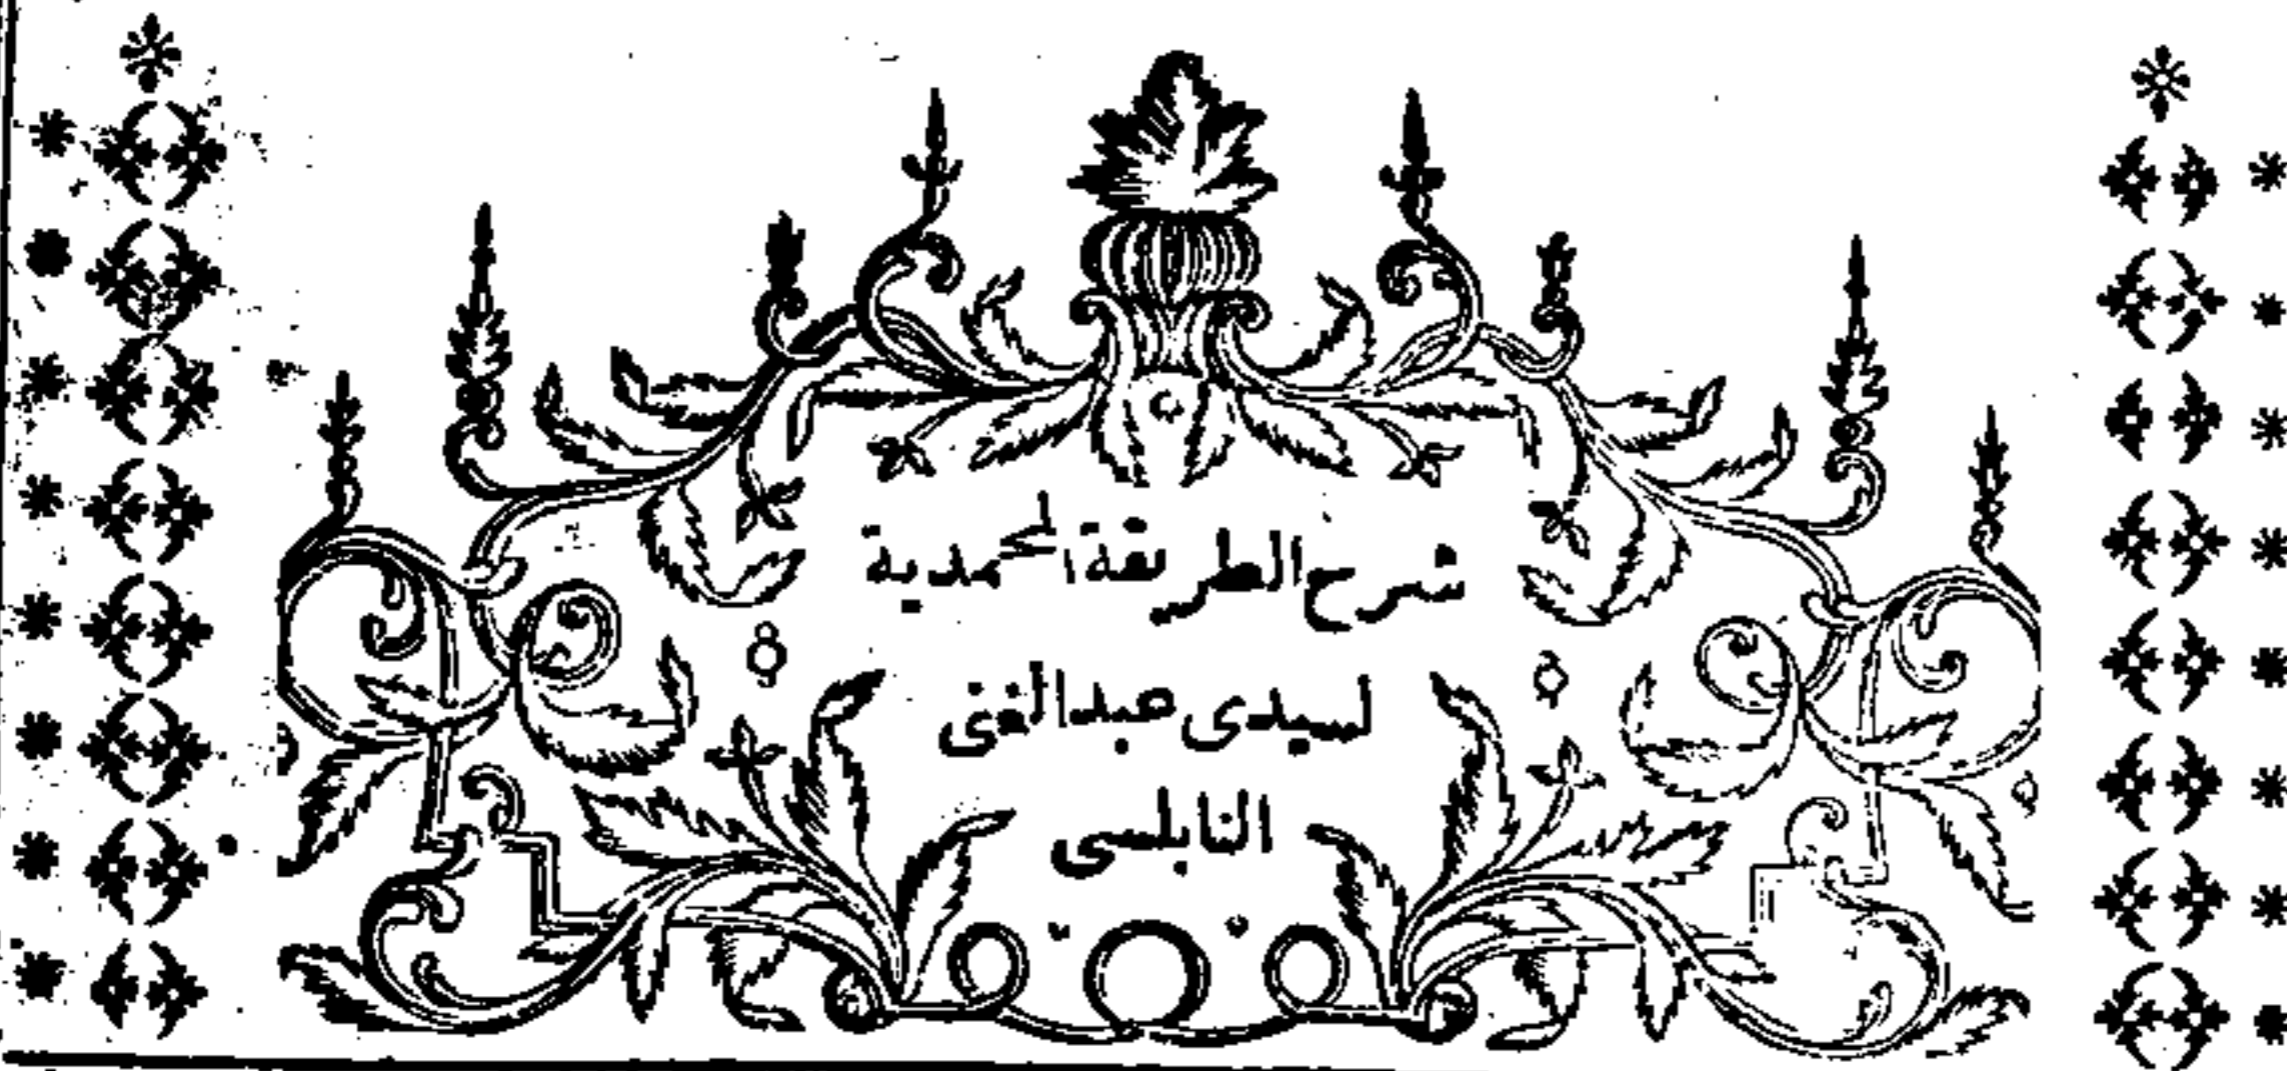 شرح الطريقة المحمدية
لسيدى عبد الغنى
النابلسى